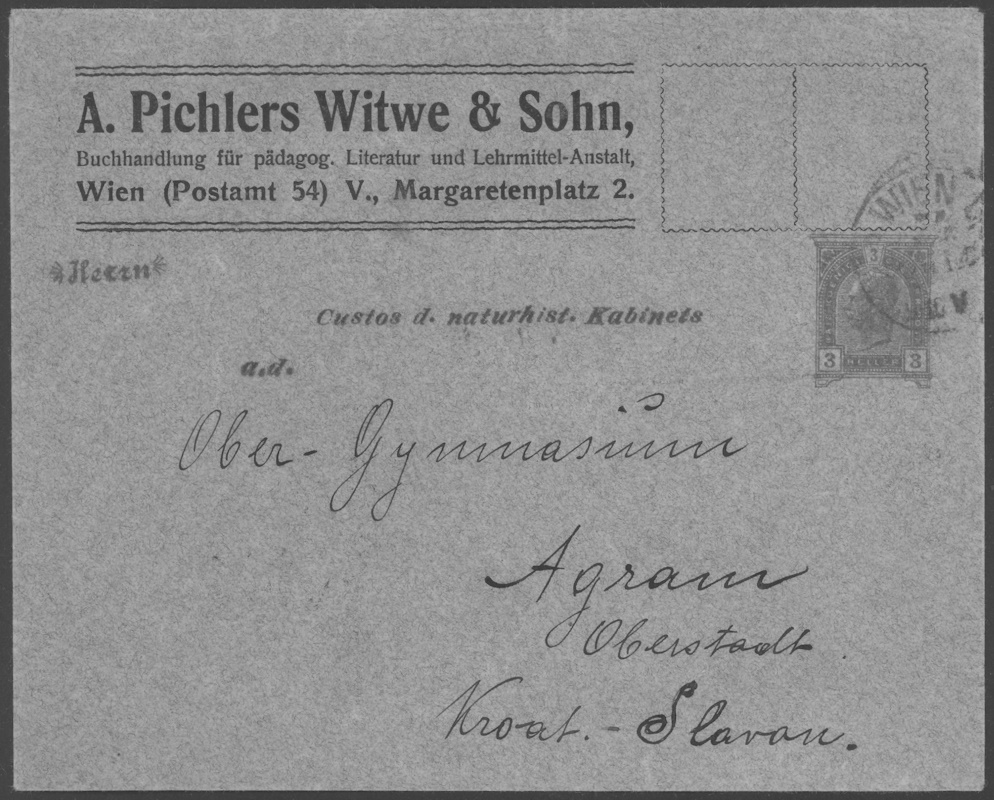 A. Pichlers Witwe & Sohn,
Buchhandlung für pädagog. Literatur und Lehrmittel-Anstalt,
Wien (Postamt 54) V., Margaretenplatz 2.
WIEN
3
3 HELLER 3
*Herrn*
Custos d. naturhist. Kabinets
a.d.
Ober-Gymnasium
Agram
Oberstadt.
Kroat.-Slavon.